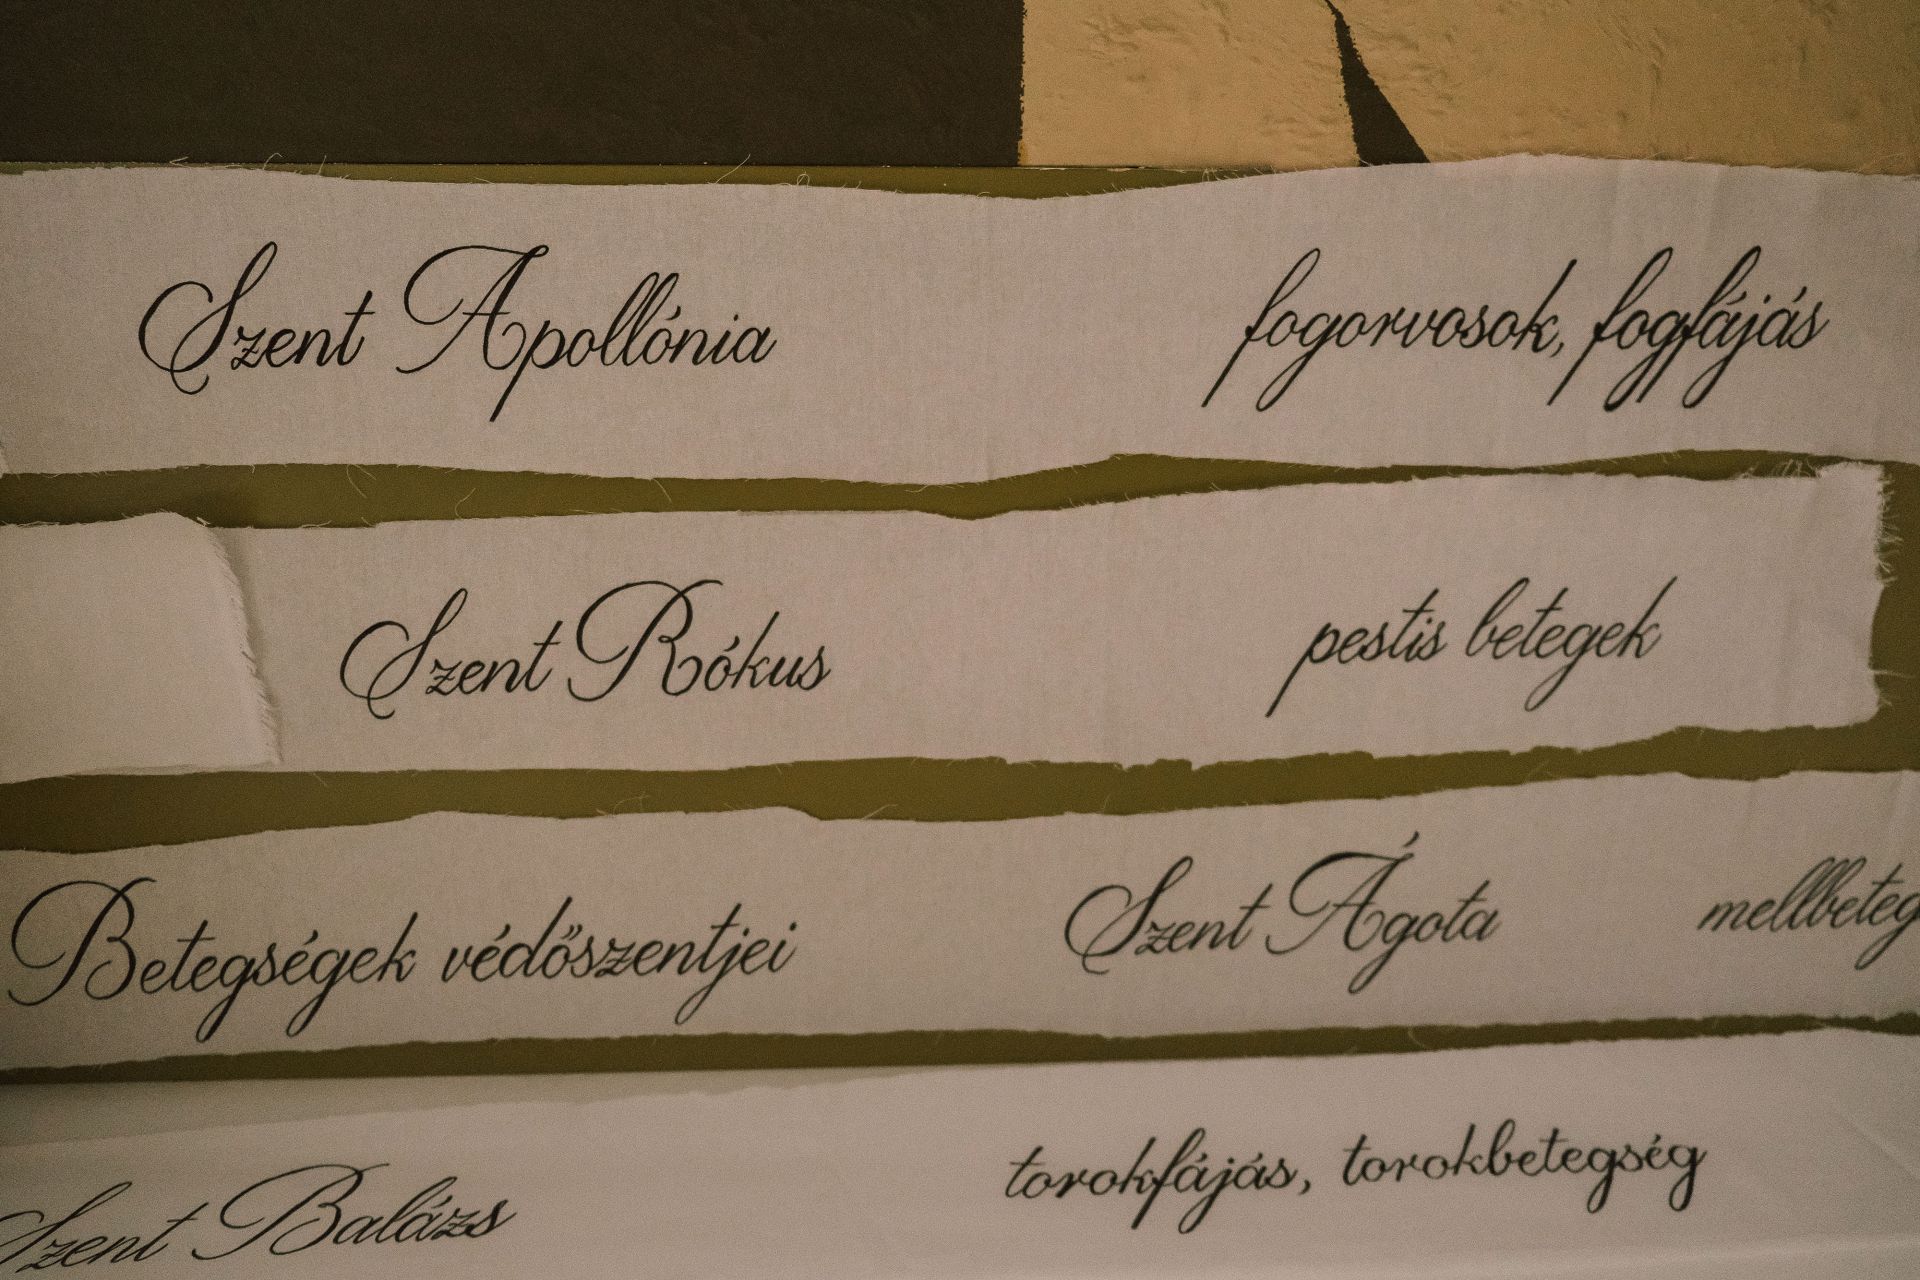 Szent Apollónia fogorvosok, fogfájás
Szent Rókus pestis betegek
Betegségek védőszentjei Szent Ágota mellbeteg
Szent Balázs torokfájás, torokbetegség